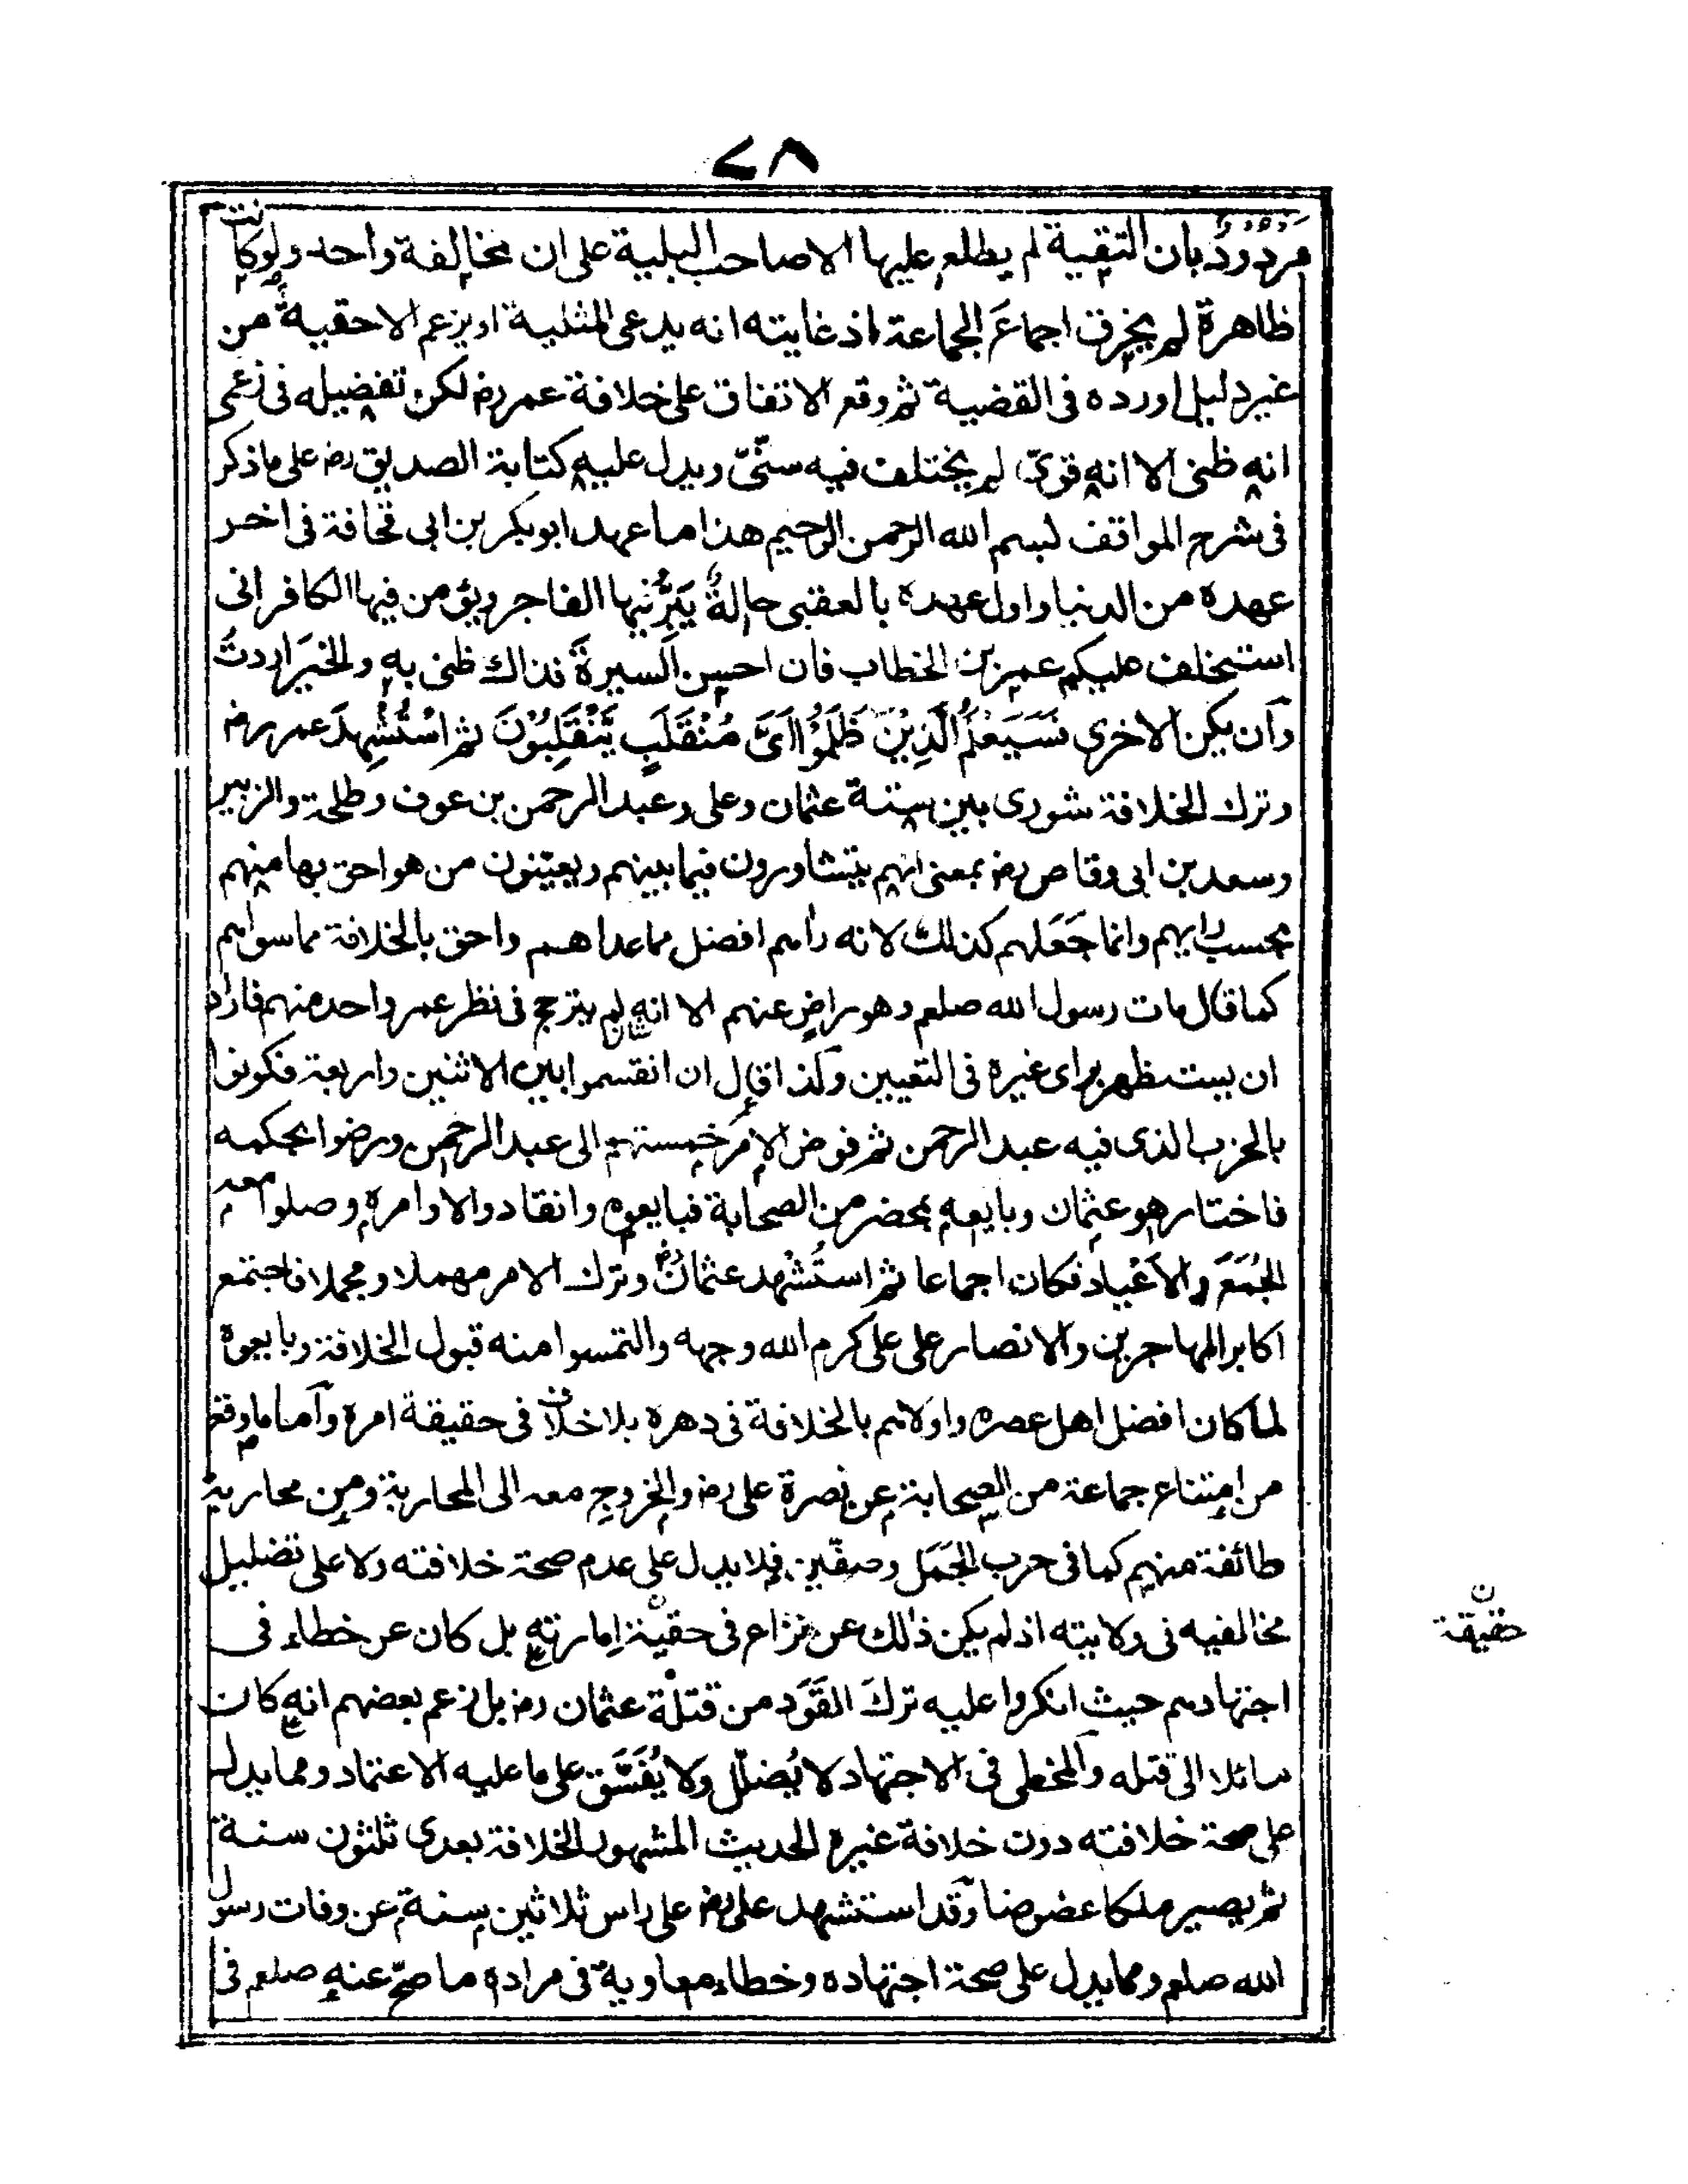 ٧٨
مردود بان التقية لم يطلع عليها الا صاحب البلية على ان مخالفة واحد ولو كانت
ظاهرة لم يخرق اجماع الجماعة اذ غايته انه يدعى المثلية او يزعم الاحقية من
غير دليل اورده فى القضية ثم وقع الاتفاق على خلافة عمر رض لكن تفضيله فى زعمى
انه ظنى الا انه قوى لم يختلف فيه سنّىّ ويدل عليه كتابة الصديق رض على ما ذكر
فى شرح المواقف لبسم الله الرحمن الرحيم هذا ما عهد ابو بكر بن ابى قحافة فى اخر
عهده من الدنيا واول عهده بالعقبى حالةٌ يَبَرُّ فيها الفاجر ويؤمن فيها الكافر انى
استخلف عليكم عمر بن الخطاب فان احسن السيرةَ فذاك ظنى به والخيرَ اردتُ
وان يكن الاخرى فَسَيَعْلَمُ الَّذِيْنَ ظَلَمُوْا اَىَّ مُنْقَلَبٍ يَّنْقَلِبُوْنَ ثم اسْتُشْهِدَ عمر رض
وترك الخلافة شورى بين ستة عثمان وعلى وعبد الرحمن بن عوف وطلحة والزبير
وسعد بن ابى وقاص رض بمعنى انهم يتشاورون فيما بينهم ويعينون من هو احق بها منهم
بحسب رايهم وانما جَعَلهم كذلك لانه راهم افضل مما عداهم واحق بالخلافة مما سواهم
كما قال مات رسول الله صلعم وهو راض عنهم الا انه لم يترجح فى نظر عمر واحد منهم فاراد
ان يستظهر براى غيره فى التعيين وكذا قال ان انقسموا بين الاثنين واربعة فكونوا
بالحزب الذى فيه عبد الرحمن ثم فوض الامرَ خمستهم الى عبد الرحمن ورضوا بحكمه
فاختار هو عثمان وبايعه بمحضر من الصحابة فبايعوه وانقادوا لاوامره وصلوا معه
الجُمَعَ والاَعْيادَ فكان اجماعا ثم استُشْهد عثمان رض وترك الامر مهملا ومجملا فاجتمع
اكابر المهاجرين والانصار على على كرم الله وجهه والتمسوا منه قبول الخلافة وبايعوه
لما كان افضل اهل عصره واولاهم بالخلافة فى دهره بلا خلاف فى حقيقة امره وآما ما وقع
من امتناع جماعة من الصحابة عن نصرة على رض والخروج معه الى المحاربة ومن محاربة
طائفة منهم كما فى حرب الجَمَل وصفّين فلا يدل على عدم صحة خلافته ولا على تضليل
مخالفيه فى ولايته اذ لم يكن ذلك عن نزاع فى حقية امارته بل كان عن خطاء فى
ن
حقيقة
اجتهادهم حيث انكروا عليه تركَ القَوَد من قتلة عثمان رض بل زعم بعضهم انه كان
مائلا الى قتله والمخطى فى الاجتهاد لا يُضلّل ولا يُفَسَّق على ما عليه الاعتماد ومما يدل
على صحة خلافته دون خلافة غيره الحديث المشهور الخلافة بعدى ثلثون سنة
ثم يصير ملكا عضوضا وقد استشهد على رض على راس ثلاثين سنة من وفات رسول
الله صلعم ومما يدل على صحة اجتهاده وخطاء معاوية فى مراده ما صحّ عنه صلعم فى